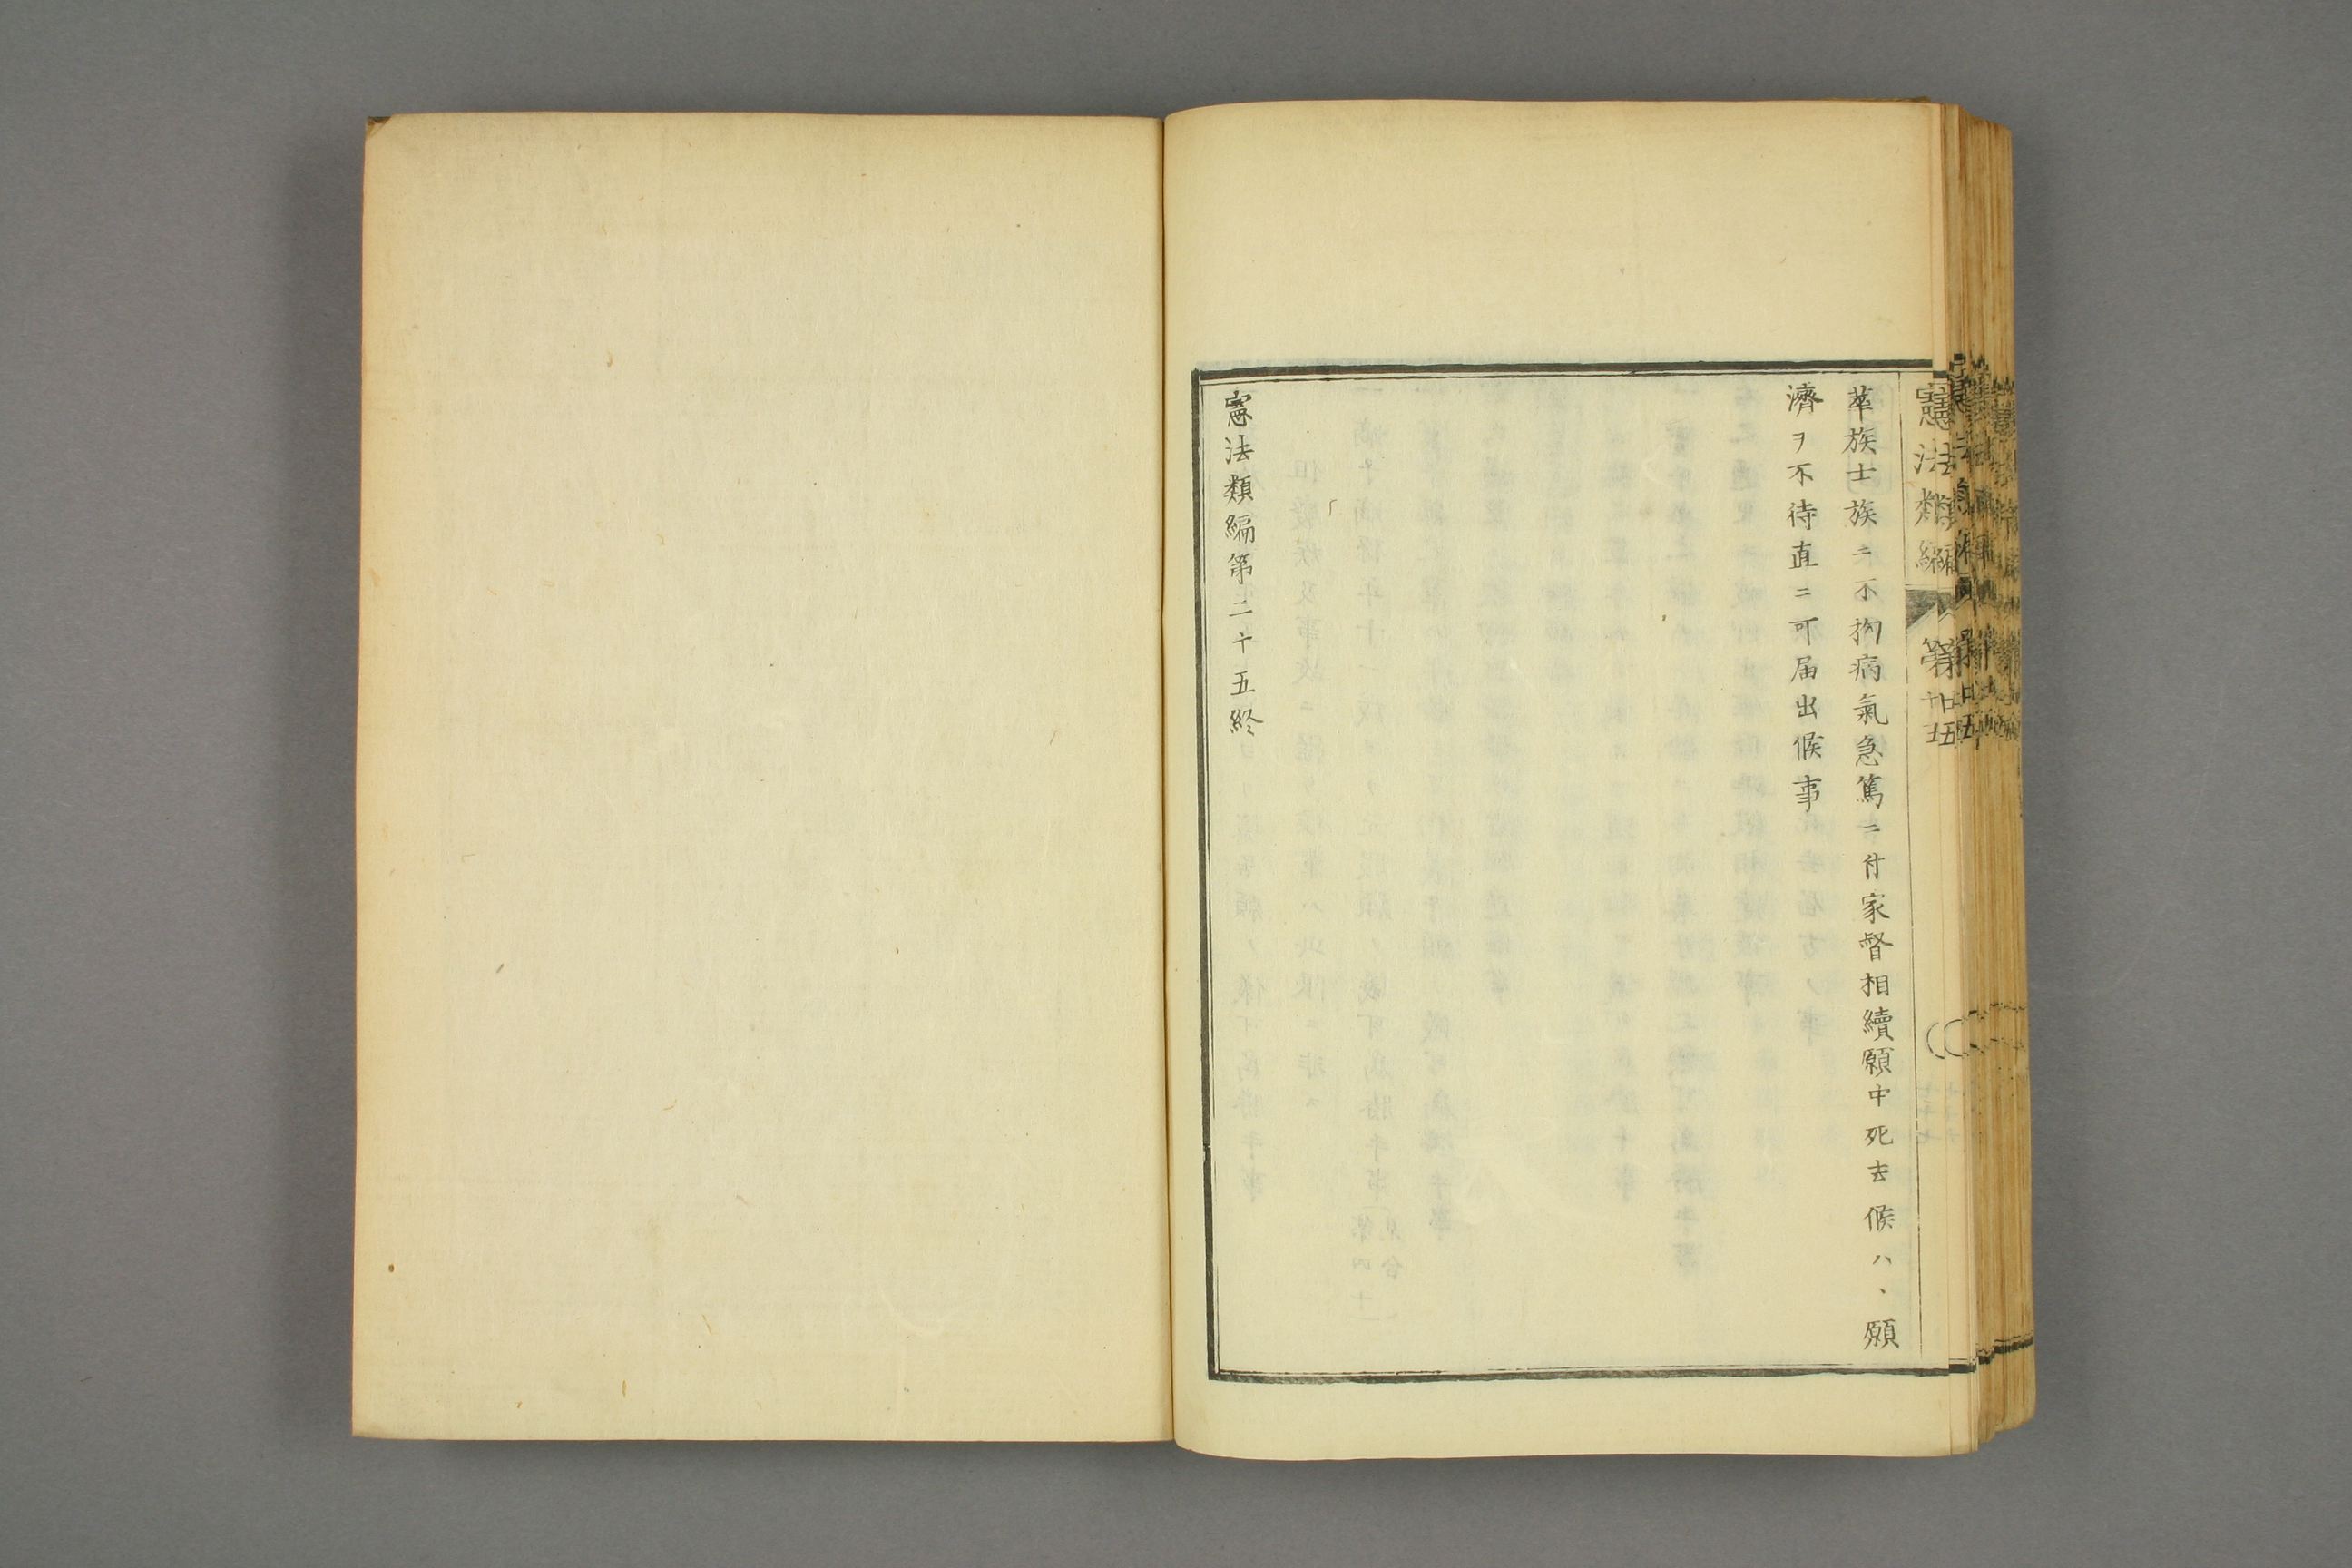 憲法類編 第廿五
華族士族ニ不拘病氣急篤ニ付家督相續願中死去候ハ、願
濟ヲ不待直ニ可届出候事
憲法類編第二十五終